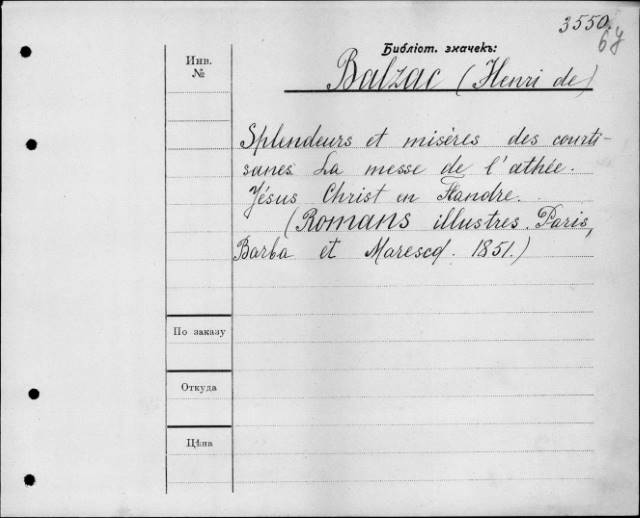 3550.
Библіот. значекъ:
Инв.
№
Balzac (Henri de)
Splendeurs et misères des courti-
sanes. La messe de l'athée.
Jésus Christ en Flandre.
(Romans illustres. Paris,
Barba et Marescq. 1851.)
По заказу
Откуда
Цѣна